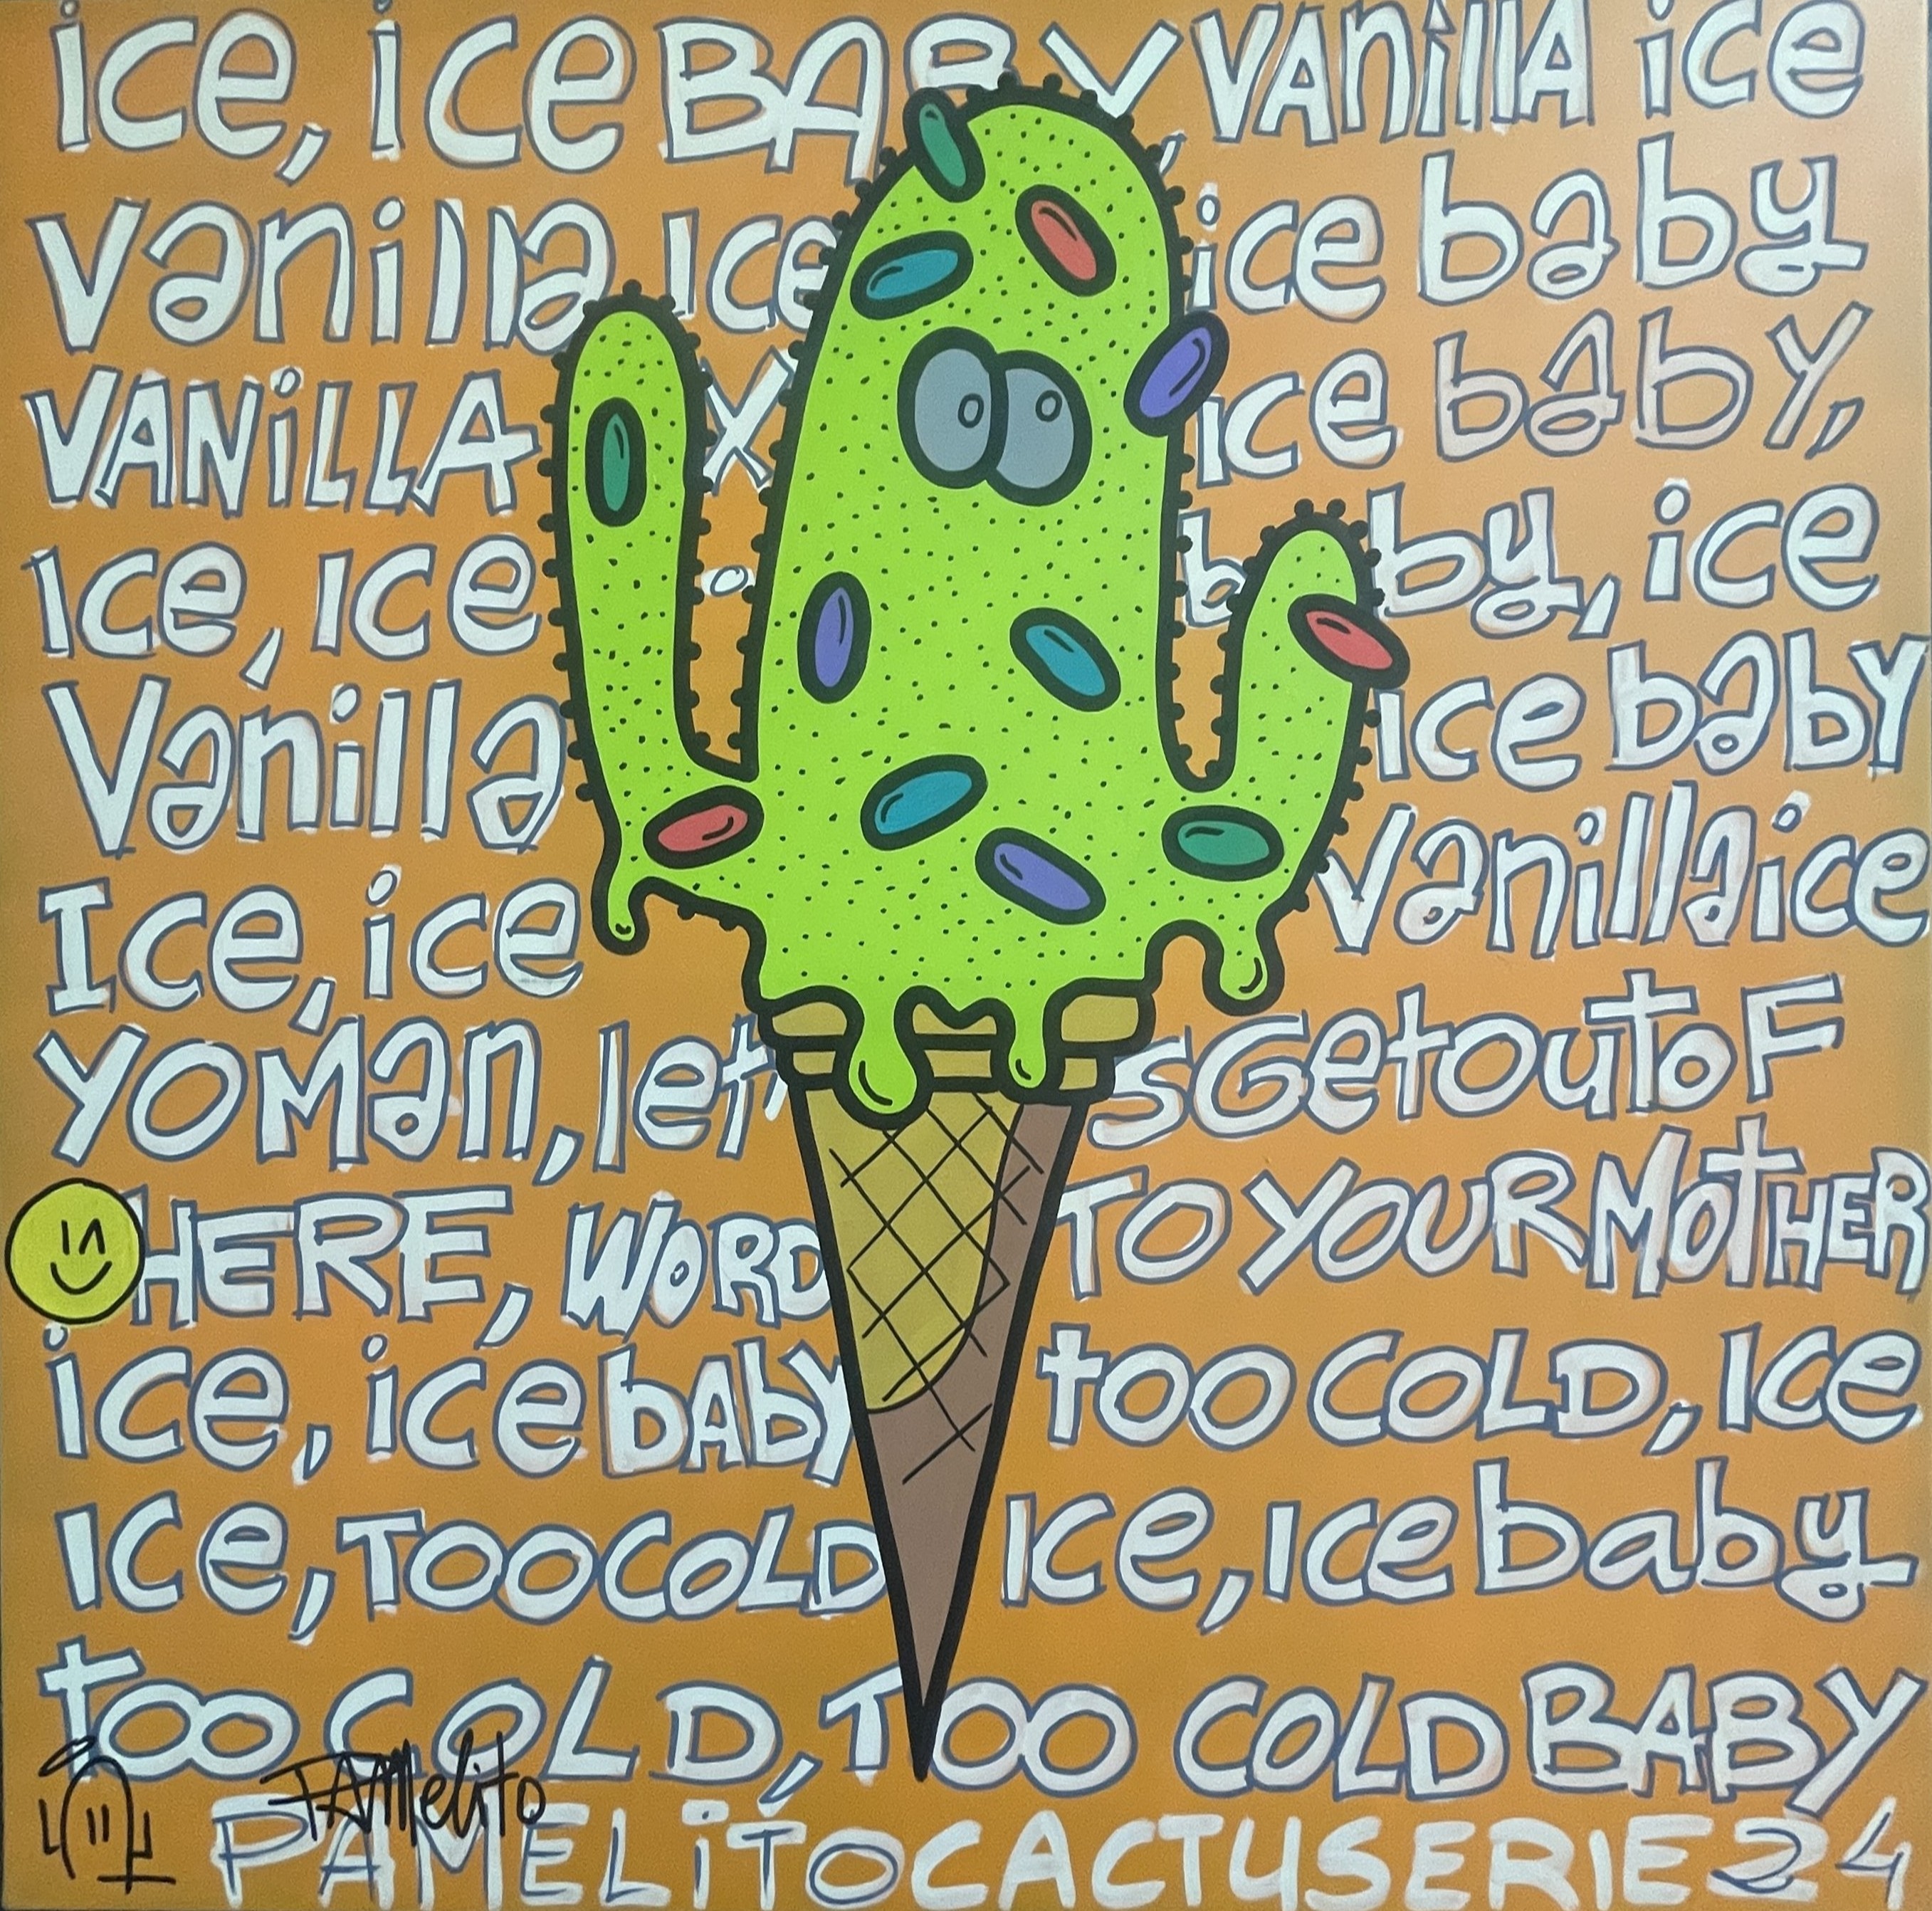 ice, ice BABY, VAnillA ice
vanilla ice ice baby
VANiLLA ice baby,
ice, ice baby, ice
Vanilla ice baby
Ice, ice vanilla ice
YO Man, let's Get out oF
HERE, WORD TO YOUR MOTHER
ice, ice bAby too COLD, ice
ice, TOO COLD ice, ice baby
too COLD, TOO COLD BABY
PAMELiTO CACTUSERIE 24
PAMelito